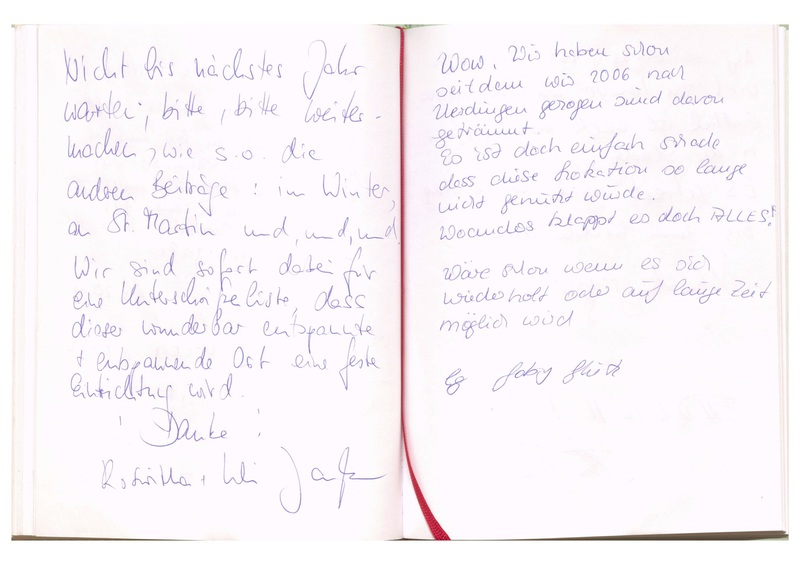 Nicht bis nächstes Jahr
warten, bitte, bitte weiter-
machen, wie s.o. die
anderen Beiträge: im Winter,
an St. Martin und, und, und.
Wir sind sofort dabei für
eine Unterschriftenliste, dass
dieser wunderbar entspannte
+ entspannende Ort eine feste
Einrichtung wird.
! Danke !
Roswitha +
Wow. Wir haben schon
seitdem wir 2006 nach
Uerdingen gezogen sind davon
geträumt.
Es ist doch einfach schade
dass diese Lokation so lange
nicht genutzt wurde.
Woanders klappt es doch ALLES!
Wäre schön wenn es sich
wiederholt oder auf lange Zeit
möglich wird
Gaby